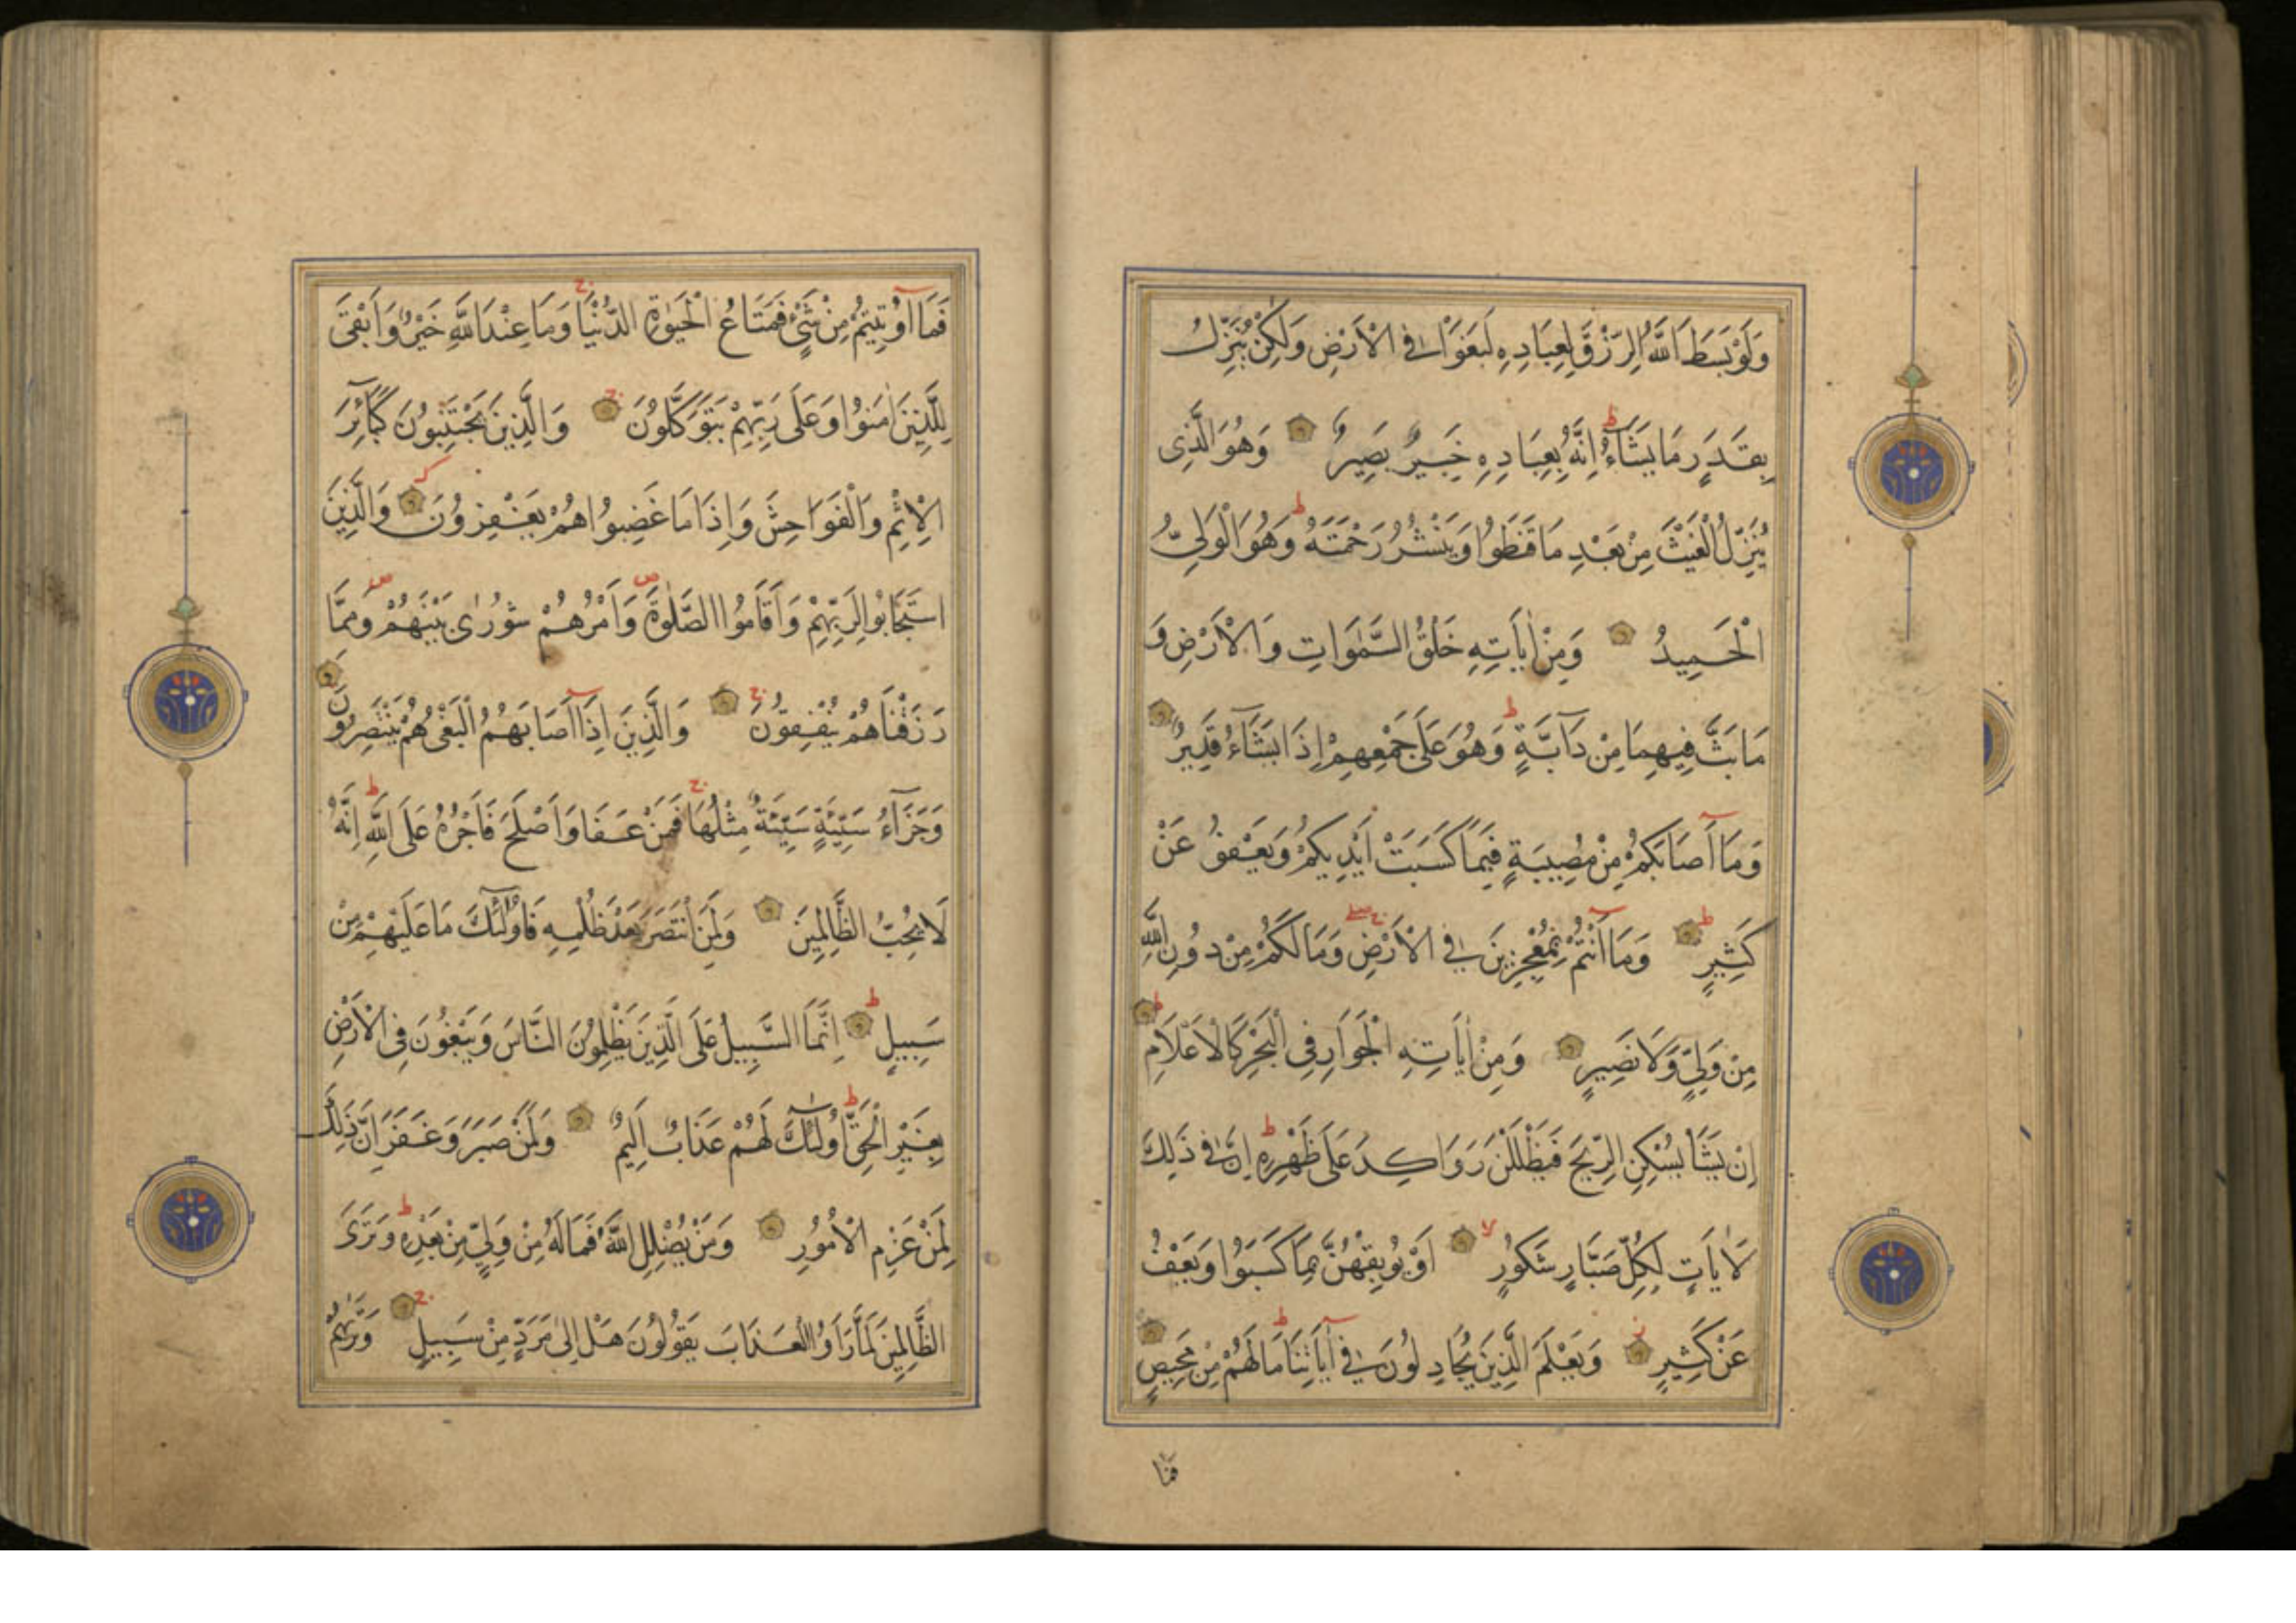 وَلَوْ بَسَطَ اللّٰهُ الرِّزْقَ لِعِبَادِهِ لَبَغَوْا فِي الْاَرْضِ وَلٰكِنْ يُنَزِّلُ
بِقَدَرٍ مَا يَشَآءُ ط اِنَّهُ بِعِبَادِهِ خَبِيرٌ بَصِيرٌ وَهُوَ الَّذِى
يُنَزِّلُ الْغَيْثَ مِنْ بَعْدِ مَا قَنَطُوا وَيَنْشُرُ رَحْمَتَهُ ط وَهُوَ الْوَلِيُّ
الْحَمِيدُ وَمِنْ اٰيَاتِهِ خَلْقُ السَّمٰوَاتِ وَالْاَرْضِ وَ
مَا بَثَّ فِيهِمَا مِنْ دَآبَّةٍ ط وَهُوَ عَلَى جَمْعِهِمْ اِذَا يَشَآءُ قَدِيرٌ
وَمَا اَصَابَكُمْ مِنْ مُصِيبَةٍ فَبِمَا كَسَبَتْ اَيْدِيكُمْ وَيَعْفُو عَنْ
كَثِيرٍ ط وَمَا اَنْتُمْ بِمُعْجِزِينَ فِي الْاَرْضِ ج صلے وَمَا لَكُمْ مِنْ دُونِ اللّٰهِ
مِنْ وَلِيٍّ وَلَا نَصِيرٍ وَمِنْ اٰيَاتِهِ الْجَوَارِ فِى الْبَحْرِ كَالْاَعْلَامِ ط
اِنْ يَشَأْ يُسْكِنِ الرِّيحَ فَيَظْلَلْنَ رَوَاكِدَ عَلَى ظَهْرِهِ ط اِنَّ فِي ذٰلِكَ
لَاٰيَاتٍ لِكُلِّ صَبَّارٍ شَكُورٍ لا اَوْ يُوبِقْهُنَّ بِمَا كَسَبُوا وَيَعْفُ
عَنْ كَثِيرٍ ز وَيَعْلَمَ الَّذِينَ يُجَادِلُونَ فِي اٰيَاتِنَا ط مَا لَهُمْ مِنْ مَحِيصٍ
فَمَا
فَمَا اُوتِيتُمْ مِنْ شَيْءٍ فَمَتَاعُ الْحَيٰوةِ الدُّنْيَا ج وَمَا عِنْدَ اللّٰهِ خَيْرٌ وَاَبْقَى
لِلَّذِينَ اٰمَنُوا وَعَلَى رَبِّهِمْ يَتَوَكَّلُونَ ج وَالَّذِينَ يَجْتَنِبُونَ كَبَآئِرَ
الْاِثْمِ وَالْفَوَاحِشَ وَاِذَا مَا غَضِبُوا هُمْ يَغْفِرُونَ وَالَّذِينَ
اسْتَجَابُوا لِرَبِّهِمْ وَاَقَامُوا الصَّلٰوةَ ص وَاَمْرُهُمْ شُورٰى بَيْنَهُمْ ص وَمِمَّا
رَزَقْنَاهُمْ يُنْفِقُونَ ج وَالَّذِينَ اِذَا اَصَابَهُمُ الْبَغْىُ هُمْ يَنْتَصِرُونَ
وَجَزَآءُ سَيِّئَةٍ سَيِّئَةٌ مِثْلُهَا ج فَمَنْ عَفَا وَاَصْلَحَ فَاَجْرُهُ عَلَى اللّٰهِ ط اِنَّهُ
لَا يُحِبُّ الظَّالِمِينَ وَلَمَنِ انْتَصَرَ بَعْدَ ظُلْمِهِ فَاُولٰٓئِكَ مَا عَلَيْهِمْ مِنْ
سَبِيلٍ ط اِنَّمَا السَّبِيلُ عَلَى الَّذِينَ يَظْلِمُونَ النَّاسَ وَيَبْغُونَ فِى الْاَرْضِ
بِغَيْرِ الْحَقِّ ط اُولٰٓئِكَ لَهُمْ عَذَابٌ اَلِيمٌ وَلَمَنْ صَبَرَ وَغَفَرَ اِنَّ ذٰلِكَ
لَمِنْ عَزْمِ الْاُمُورِ وَمَنْ يُضْلِلِ اللّٰهُ فَمَا لَهُ مِنْ وَلِيٍّ مِنْ بَعْدِهِ ط وَتَرَى
الظَّالِمِينَ لَمَّا رَاَوُا الْعَذَابَ يَقُولُونَ هَلْ اِلَى مَرَدٍّ مِنْ سَبِيلٍ ج وَتَرٰيهُمْ